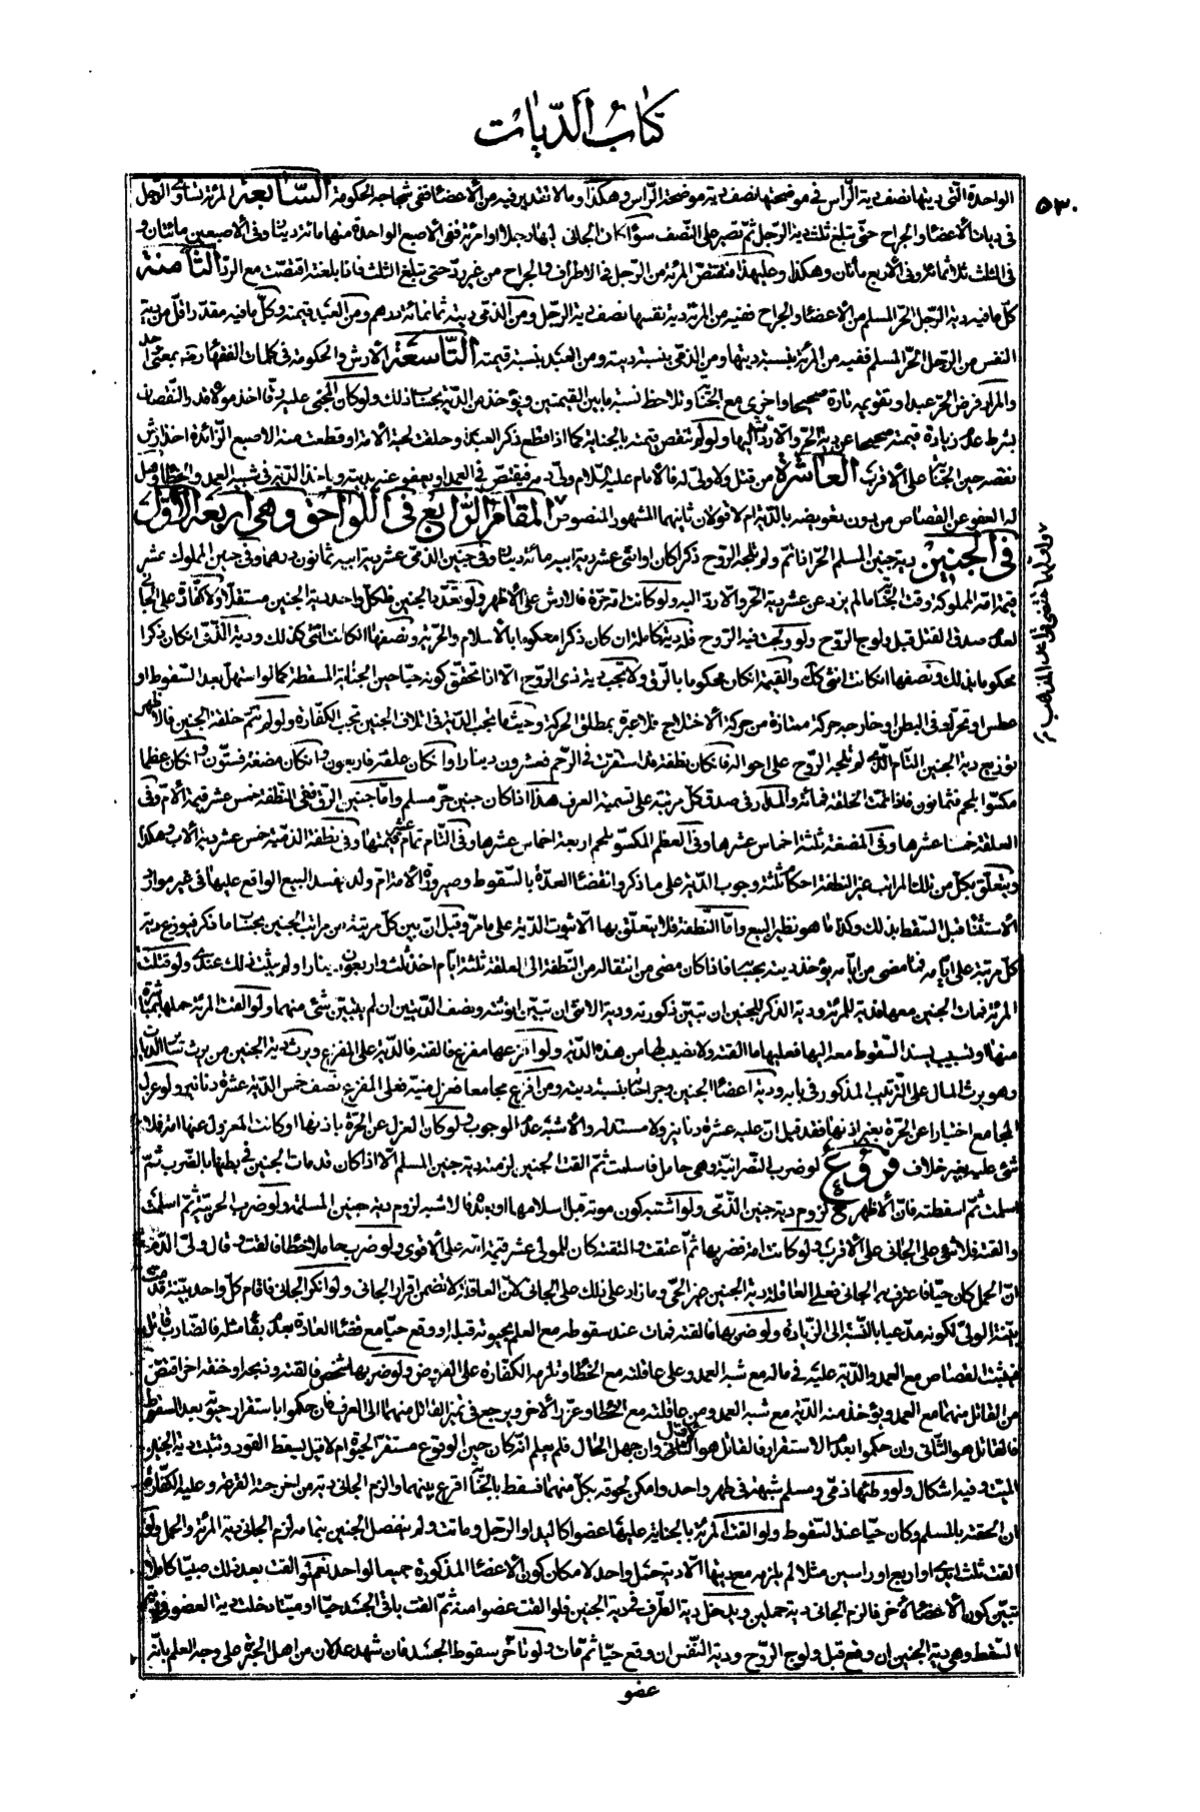 كتاب الديات
٥٣٠
الواحدة الّتى ديتها نصف دية الرّأس فى موضحتها نصف دية موضحة الرّأس وهكذا وما لا تقدير فيه من الأعضاء ففى شجاجه الحكومة السّابعة المرئة تساوى الرّجل
فى ديات الأعضاء والجراح حتّى تبلغ ثلث دية الرّجل ثم تصير على النّصف سواء كان الجانى لها رجلا او امرئة ففى الأصبع الواحدة منها مائة دينار وفى الأصبعين مائتان و
فى الثلث ثلاثمائة وفى الأربع مأتان وهكذا وعليهذا فتقتصّ المرئة من الرّجل فى الاطراف والجراح من غير ردّ حتى تبلغ الثلث فاذا بلغته اقتصّت مع الردّ الثّامنة
كلّ ما فيه دية الرّجل الحرّ المسلم من الأعضاء والجراح ففيه من المرئة دية نفسها نصف دية الرّجل ومن الذّمّى ديته ثمانمائة درهم ومن العبد قيمته وكلّ ما فيه مقدّر اقلّ من دية
النفس من الرّجل الحرّ المسلم ففيه من المرئة بنسبة ديتها ومن الذّمّى بنسبة ديته ومن العبد بنسبة قيمته التّاسعة الأرش والحكومة فى كلمات الفقهاء رحمه بمعنى واحد
والمراد فرض الحرّ عبدا وتقويمه تارة صحيحا واخرى مع الجناية وتلاحظ نسبة ما بين القيمتين ويؤخذ من الدّية بحساب ذلك ولو كان المجنى عليه رقّا اخذ مولاه قدر النّقصان
بشرط عدم زيادة قيمته صحيحا عن دية الحرّ والّا ردّت اليها ولو لم تنقص قيمته بالجناية كما اذا قطع ذكر العبد او حلقت لحية الأمة او قطعت منه الاصبع الزّائدة اخذ ارش
نقصه حين الجناية على الأقرب العاشرة من قتل ولا ولىّ له فالأمام عليه السّلام ولىّ دمه فيقتصّ فى العمد او يعفو عنه بدية وياخذ الدّية فى شبيه العمد والخطاء وهل
له العفو عن القصاص من دون تعويضه بالدّية ام لا قولان ثانيهما المشهور المنصوص المقام الرّابع فى اللّواحق وهى اربعة الاوّل
فى الجنين دية جنين المسلم الحرّ اذا تمّ ولم تلجه الرّوح ذكرا كان او انثى عشر دية ابيه مائة دينار وفى جنين الذّمّى عشر دية ابيه ثمانون درهما وفى جنين المملوك عشر
قيمة امّه المملوكة وقت الجناية ما لم يزد عن عشر دية الحرّ والّا ردّ اليه ولو كانت امّه حرّة فالارش على الأظهر ولو تعدّد الجنين فلكلّ واحد دية الجنين مستقلّا ولا كفّارة على الجانى
لعدم صدق القتل قبل ولوج الرّوح ولو ولجت فيه الرّوح فديته كاملة ان كان ذكرا محكوما بالأسلام والحرّية ونصفها ان كانت انثى كذلك ودية الذّمّى ان كان ذكرا
محكوما بذلك ونصفها ان كانت انثى كك والقيمة ان كان محكوما بالرّق ولا تجب دية ذى الرّوح الّا اذا تحقّق كونه حيّا حين الجناية المسقطة كما لو استهلّ بعد السّقوط او
عطس او تحرّك فى البطن او خارجه حركة ممتازة من حركة الأختلاج فلا عبرة بمطلق الحركة وحيثما تجب الدّية فى اتلاف الجنين تجب الكفّارة ولو لم يتمّ خلقة الجنين فالأظهر
توزيع دية الجنين التّام الّذى لم تلجه الرّوح على احواله فان كان نطفة قد استقرّت فى الرّحم فعشرون دينارا وان كان علقة فاربعون وان كان مضغة فستّون وان كان عظما
مكسوّا بلحم فثمانون فاذا تمّت الخلقة فمائة والمدار فى صدق كلّ مرتبة على تسمية العرف هذا اذا كان جنين حرّ مسلم وامّا جنين الرّق ففى النّطفة خمس عشر قيمة الأمّ وفى
العلقة خمسا عشرها وفى المضغة ثلثة اخماس عشرها وفى العظم المكسوّ بلحم اربعة اخماس عشرها وفى التّام تمام عشر قيمتها وفى نطفة الذّمّية خمس عشر دية الأب وهكذا
ويتعلّق بكلّ من تلك المراتب غير النطفة احكام ثلثة وجوب الدّية على ما ذكر وانقضاء العدّة بالسّقوط وصيرورة الأمة امّ ولد يفسد البيع الواقع عليها فى غير موارد
الأستثناء قبل السّقط بذلك وكذا ما هو نظير البيع وامّا النّطفة فلا يتعلّق بها الّا ثبوت الدّية على ما مرّ وقيل انّ بين كلّ مرتبة من مراتب الجنين بحساب ما ذكر فيوزع دية
كلّ مرتبة على ايّامه فما مضى من ايّامه يؤخذ ديته بحسابها فاذا كان مضى من انتقاله من النّطفة الى العلقة ثلثة ايّام اخذ ثلث واربعون دينارا ولم يثبت ذلك عندى ولو قتلت
المرئة فمات الجنين معها فدية للمرئة ودية الذّكر للجنين ان تبيّن ذكورته ودية الانثى ان تبيّن انوثته ونصف الدّيتين ان لم يتبيّن شئ منهما ولو القت المرئة حملها بمباشرة
منها او تسبيب يسند السّقوط معه اليها فعليها ما القته ولا نصيب لها من هذه الدّية ولو افزعها مفزع فالقته فالدّية على المفزع ويرث دية الجنين من يرث سائر الديات
وهو يرث المال على التّرتيب المذكور فى بابه ودية اعضاء الجنين وجراحاته بنسبة ديته ومن افزع مجامعا فعزل منيّه فعلى المفزع نصف خمس الدّية عشرة دنانير ولو عزل
المجامع اختيارا عن الحرّة بغير اذنها فقد قيل انّ عليه عشرة دنانير ولا مستند له والأشبه عدم الوجوب ولو كان العزل عن الحرّة باذنها او كانت المعزول عنها امة فلا
شئ عليه بغير خلاف فروع لو ضرب النّصرانيّة وهى حامل فاسلمت ثمّ القت الجنين لزمته دية جنين المسلم الّا اذا كان قد مات الجنين فى بطنها بالضّرب ثمّ
اسلمت ثمّ اسقطته فانّ الأظهر ح لزوم دية جنين الذّمّى ولو اشتبه كون موته قبل اسلامها او بعده فالأشبه لزوم دية جنين المسلمة ولو ضرب الحربيّة ثمّ اسلمت
والقته فلا شئ على الجانى على الأقرب ولو كانت امة فضربها ثمّ اعتقت والقته كان للمولى عشر قيمة امّه على الأقوى ولو ضرب حاملا خطاء فالقت وقال ولىّ الدّم
انّ الحمل كان حيّا فاعترف به الجانى فعلى العاقلة دية الجنين غير الحىّ وما زاد على ذلك على الجانى لأنّ العاقلة لا تضمن اقرار الجانى ولو انكر الجانى فاقام كلّ واحد بيّنة قدّمت
بيّنة الولىّ لكونه مدّعيا بالنّسبة الى الزّيادة ولو ضربها فالقته فمات عند سقوطه مع العلم بحيوته قبله او وقع حيّا مع قضاء العادة بعدم بقاء مثله فالضّارب قاتل
فيثبت القصاص مع العمد والدّية عليه فى ماله مع شبه العمد وعلى عاقلته مع الخطاء وتلزمه الكفّارة على الفروض ولو ضربها شخص فالقته وذبحه او خنقه اخر اقتصّ
من القاتل منهما مع العمد ويؤخذ منه الدّية مع شبه العمد ومن عاقلته مع الخطاء وعزّر الأخر ويرجع فى تميز القاتل منهما الى العرف فان حكموا باستقرار حيوته بعد السقوط
فالقاتل هو الثّانى وان حكموا بعدم الاستقرار فالقاتل هو الأوّل وان جهل الحال فلم يعلم انّه كان حين الوقوع مستقرّ الحيوة ام لا قيل يسقط القود وتثبت دية الجنين
الميّت وفيه اشكال ولو وطئها ذمّى ومسلم شبهة فى طهر واحد وامكن لحوقه بكلّ منهما فسقط بالجناية اقرع بينهما والزم الجانى دية من اخرجته القرعة وعليه الكفّارة
ان الحقته بالمسلم وكان حيّا عند السّقوط ولو القت المرئة بالجناية عليها عضوا كاليد او الرّجل وماتت ولم ينفصل الجنين بتمامه لزم الجانى دية المرئة والحمل ولو
القت ثلث ايدى او اربع او راسين مثلا لم يلزمه مع ديتها الّا دية حمل واحد لامكان كون الأعضاء المذكورة جميعا لواحد نعم لو القت بعد ذلك صبيّا كاملا
تبيّن كون الأعضاء لأخر فالزم الجانى دية حملين ويدخل دية الطّرف فى دية الجنين فلو القت عضوا منه ثمّ القت باقى الجسد حيّا او ميّتا دخلت دية العضو فى دية
السّقط وهى دية الجنين ان وقع قبل ولوج الرّوح ودية النّفس ان وقع حيّا ثمّ مات ولو تأخّر سقوط الجسد فان شهد عدلان من اهل الخبرة على وجه العلم بانّه
عضو